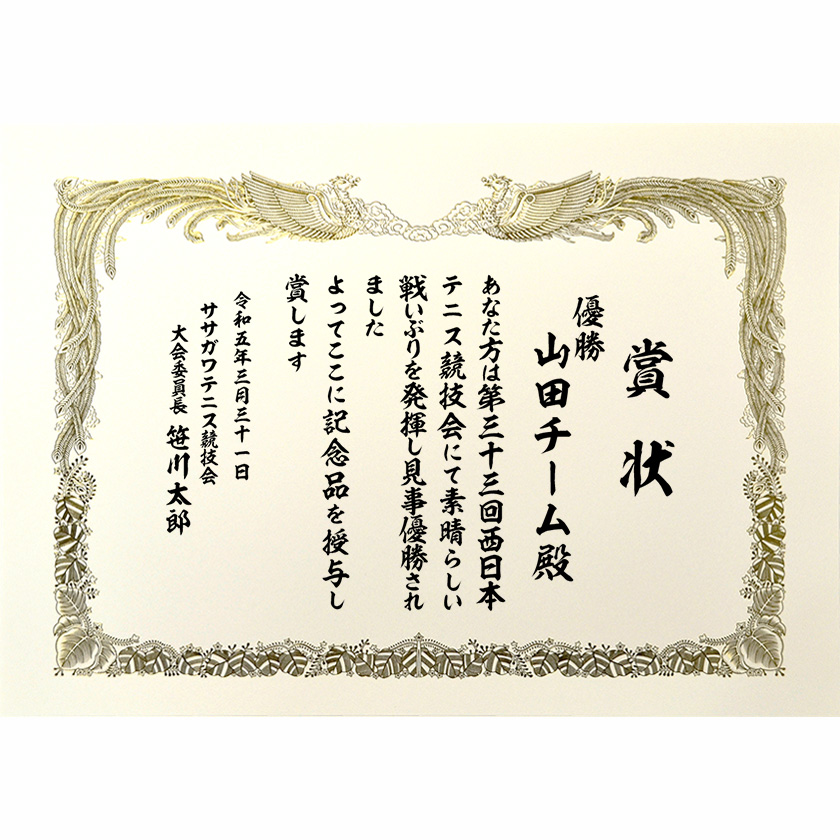 賞状
優勝
山田チーム殿
あなた方は第三十三回西日本
テニス競技会にて素晴らしい
戦いぶりを発揮し見事優勝され
ました
よってここに記念品を授与し
賞します
令和五年三月三十一日
ササガワテニス競技会
大会委員長 笹川太郎